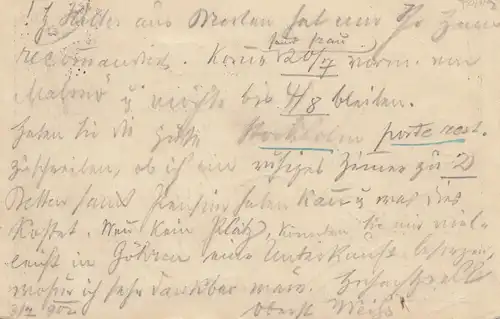 ! H. Hiller aus Dresten hat mir Ihr Haus
recomandiert. Komme 20/7 vorm. von
samt Frau
Malmö u möchte bis 4/8 bleiben.
Haben Sie die Güte Stockholm poste rest.
zu schreiben, ob ich ein ruhiges Zimer zu 2
Betten samt Pension haben kann u was das
kostet. Wenn kein Platz, könnten Sie mir viel-
leicht in Göhren eine Unterkunft besorgen,
wofür ich sehr dankbar wäre. Hochachtend
3/7 902 Oberst Weiß